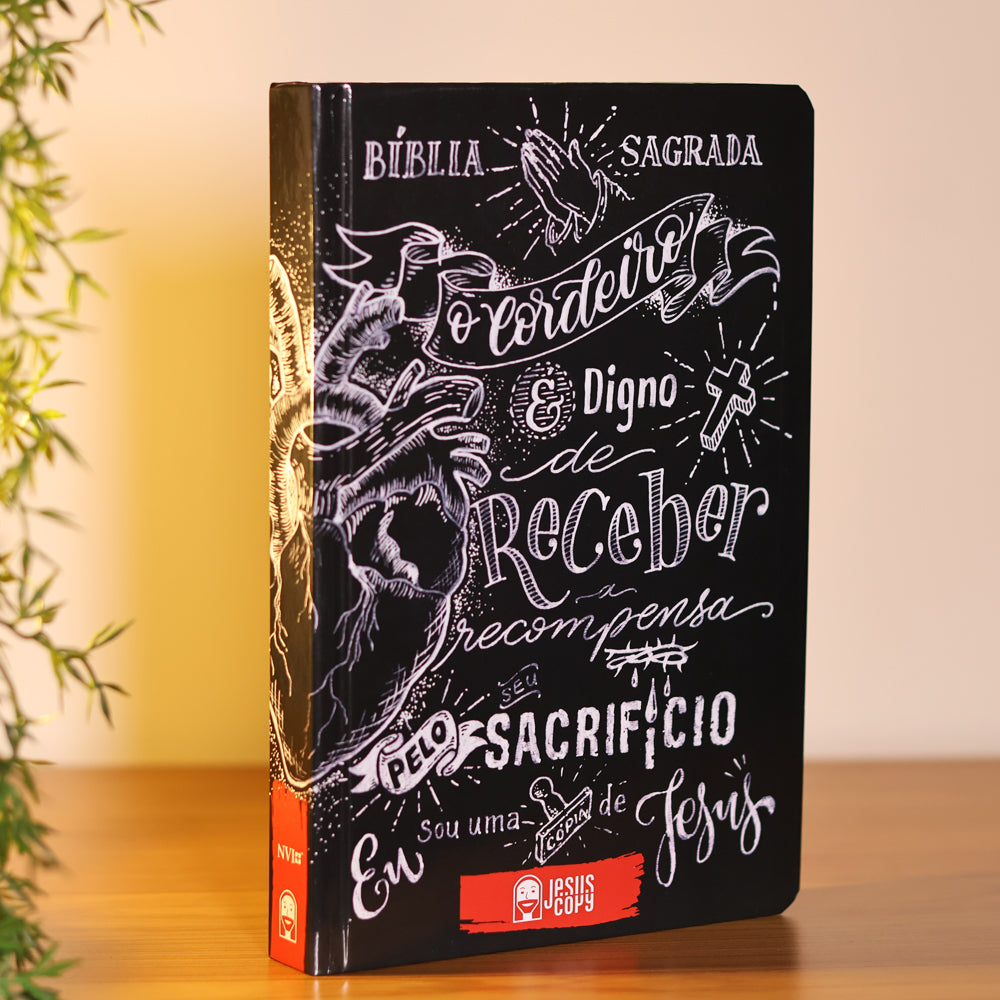 BÍBLIA SAGRADA
o Cordeiro
& Digno
de
Receber
a
recompensa
PELO SEU SACRIFÍCIO
Eu sou uma CÓPIA de Jesus
JESUS COPY
NVI